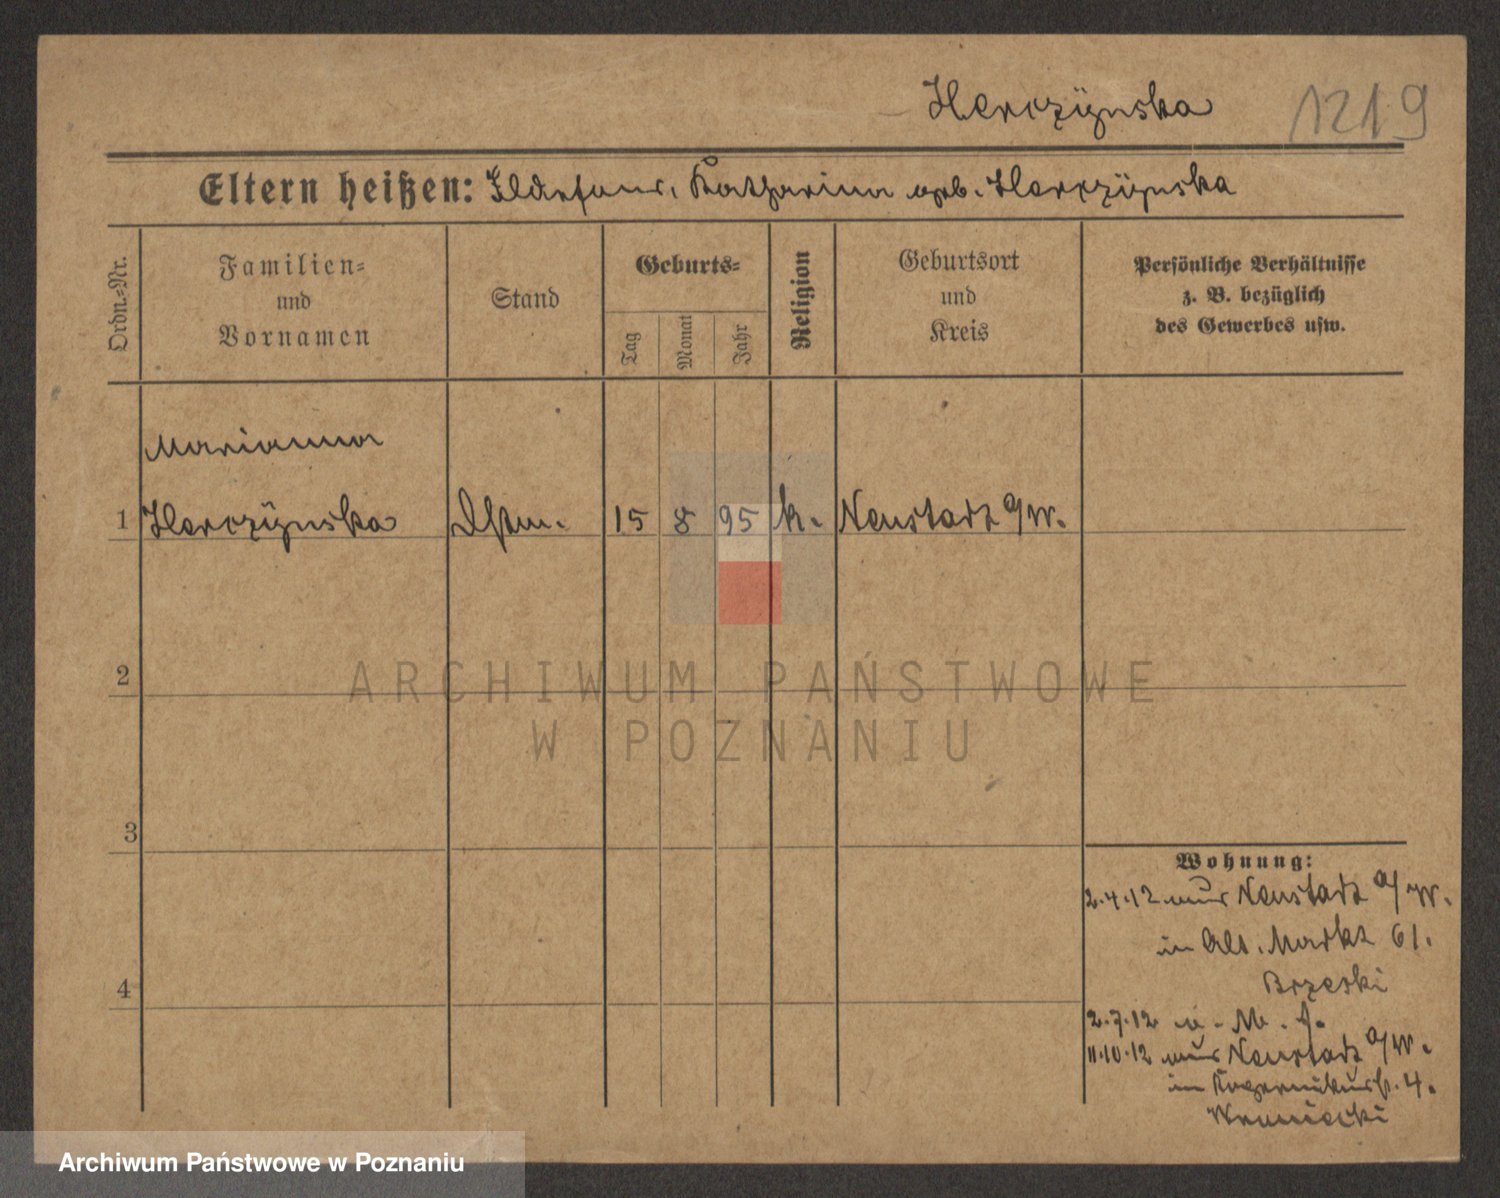 Herczÿnska 1219
Eltern heißen: Ildefons, Katharina geb. Herczÿnska
Ordn.=Nr.
Familien=
und
Vornamen
Stand
Geburts=
Tag
Monat
Jahr
Religion
Geburtsort
und
Kreis
Persönliche Verhältnisse
z. B. bezüglich
des Gewerbes usw.
Marianna
1 Herczÿnska 15 8 95 k. Neustadt a/W.
2
3
4
Wohnung:
2.4.12 aus Neustadt a/W.
in Alt. Markt 61.
Brzeski
2.7.12
11.10.12 aus Neustadt a/W.
in 4.
ARCHIWUM PAŃSTWOWE
W POZNANIU
Archiwum Państwowe w Poznaniu